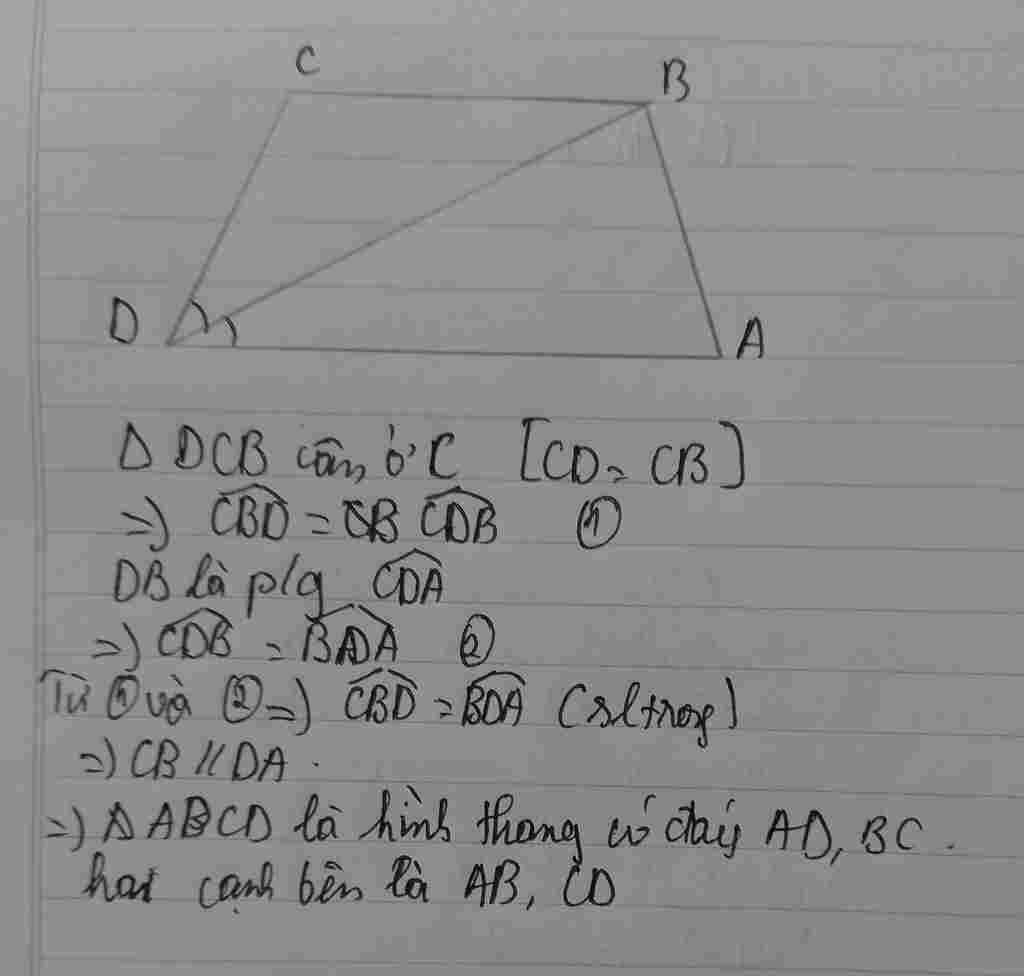 C
B
D
A
Δ DCB cân ở C [CD = CB]
=) CBD = CDB ①
DB là p/g CDA
=) CDB = BDA ②
Từ ① và ② =) CBD = BDA (sl trong)
=) CB // DA.
=) ABCD là hình thang có đáy AD, BC.
hai cạnh bên là AB, CD